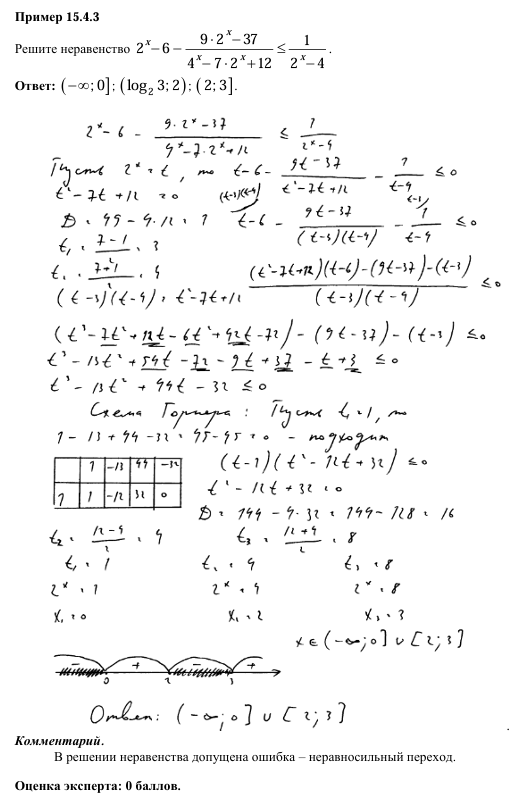 Пример 15.4.3
Решите неравенство 2^x−6−(9·2^x−37)/(4^x−7·2^x+12)≤1/(2^x−4).
Ответ: (−∞;0];(log₂3;2);(2;3].
2^x−6 − (9·2^x−37)/(4^x−7·2^x+12) ≤ 1/(2^x−4)
Пусть 2^x = t, то t−6− (9t−37)/(t²−7t+12) − 1/(t−4) ≤ 0
t²−7t+12 = 0
D = 49−4·12 = 1 t−6 − (9t−37)/((t−3)(t−4)) − 1/(t−4) ≤ 0
t₁ = (7−1)/2 = 3
t₂ = (7+1)/2 = 4 ((t²−7t+12)(t−6)−(9t−37)−(t−3))/((t−3)(t−4)) ≤ 0
(t−3)(t−4) = t²−7t+12
(t³−7t²+12t−6t²+42t−72)−(9t−37)−(t−3) ≤ 0
t³−13t²+54t−72−9t+37−t+3 ≤ 0
t³−13t²+44t−32 ≤ 0
Схема Горнера: Пусть t₁=1, то
1−13+44−32 = 45−45 = 0 − подходит
1 −13 44 −32
1 1 −12 32 0
(t−1)(t²−12t+32) ≤ 0
t²−12t+32 = 0
D = 144−4·32 = 144−128 = 16
t₂ = (12−4)/2 = 4 t₃ = (12+4)/2 = 8
t₁ = 1 t₂ = 4 t₃ = 8
2^x = 1 2^x = 4 2^x = 8
x₁ = 0 x₂ = 2 x₃ = 3
x ∈ (−∞;0] ∪ [2;3]
− + − +
0 2 3
Ответ: (−∞;0] ∪ [2;3]
Комментарий.
В решении неравенства допущена ошибка – неравносильный переход.
Оценка эксперта: 0 баллов.